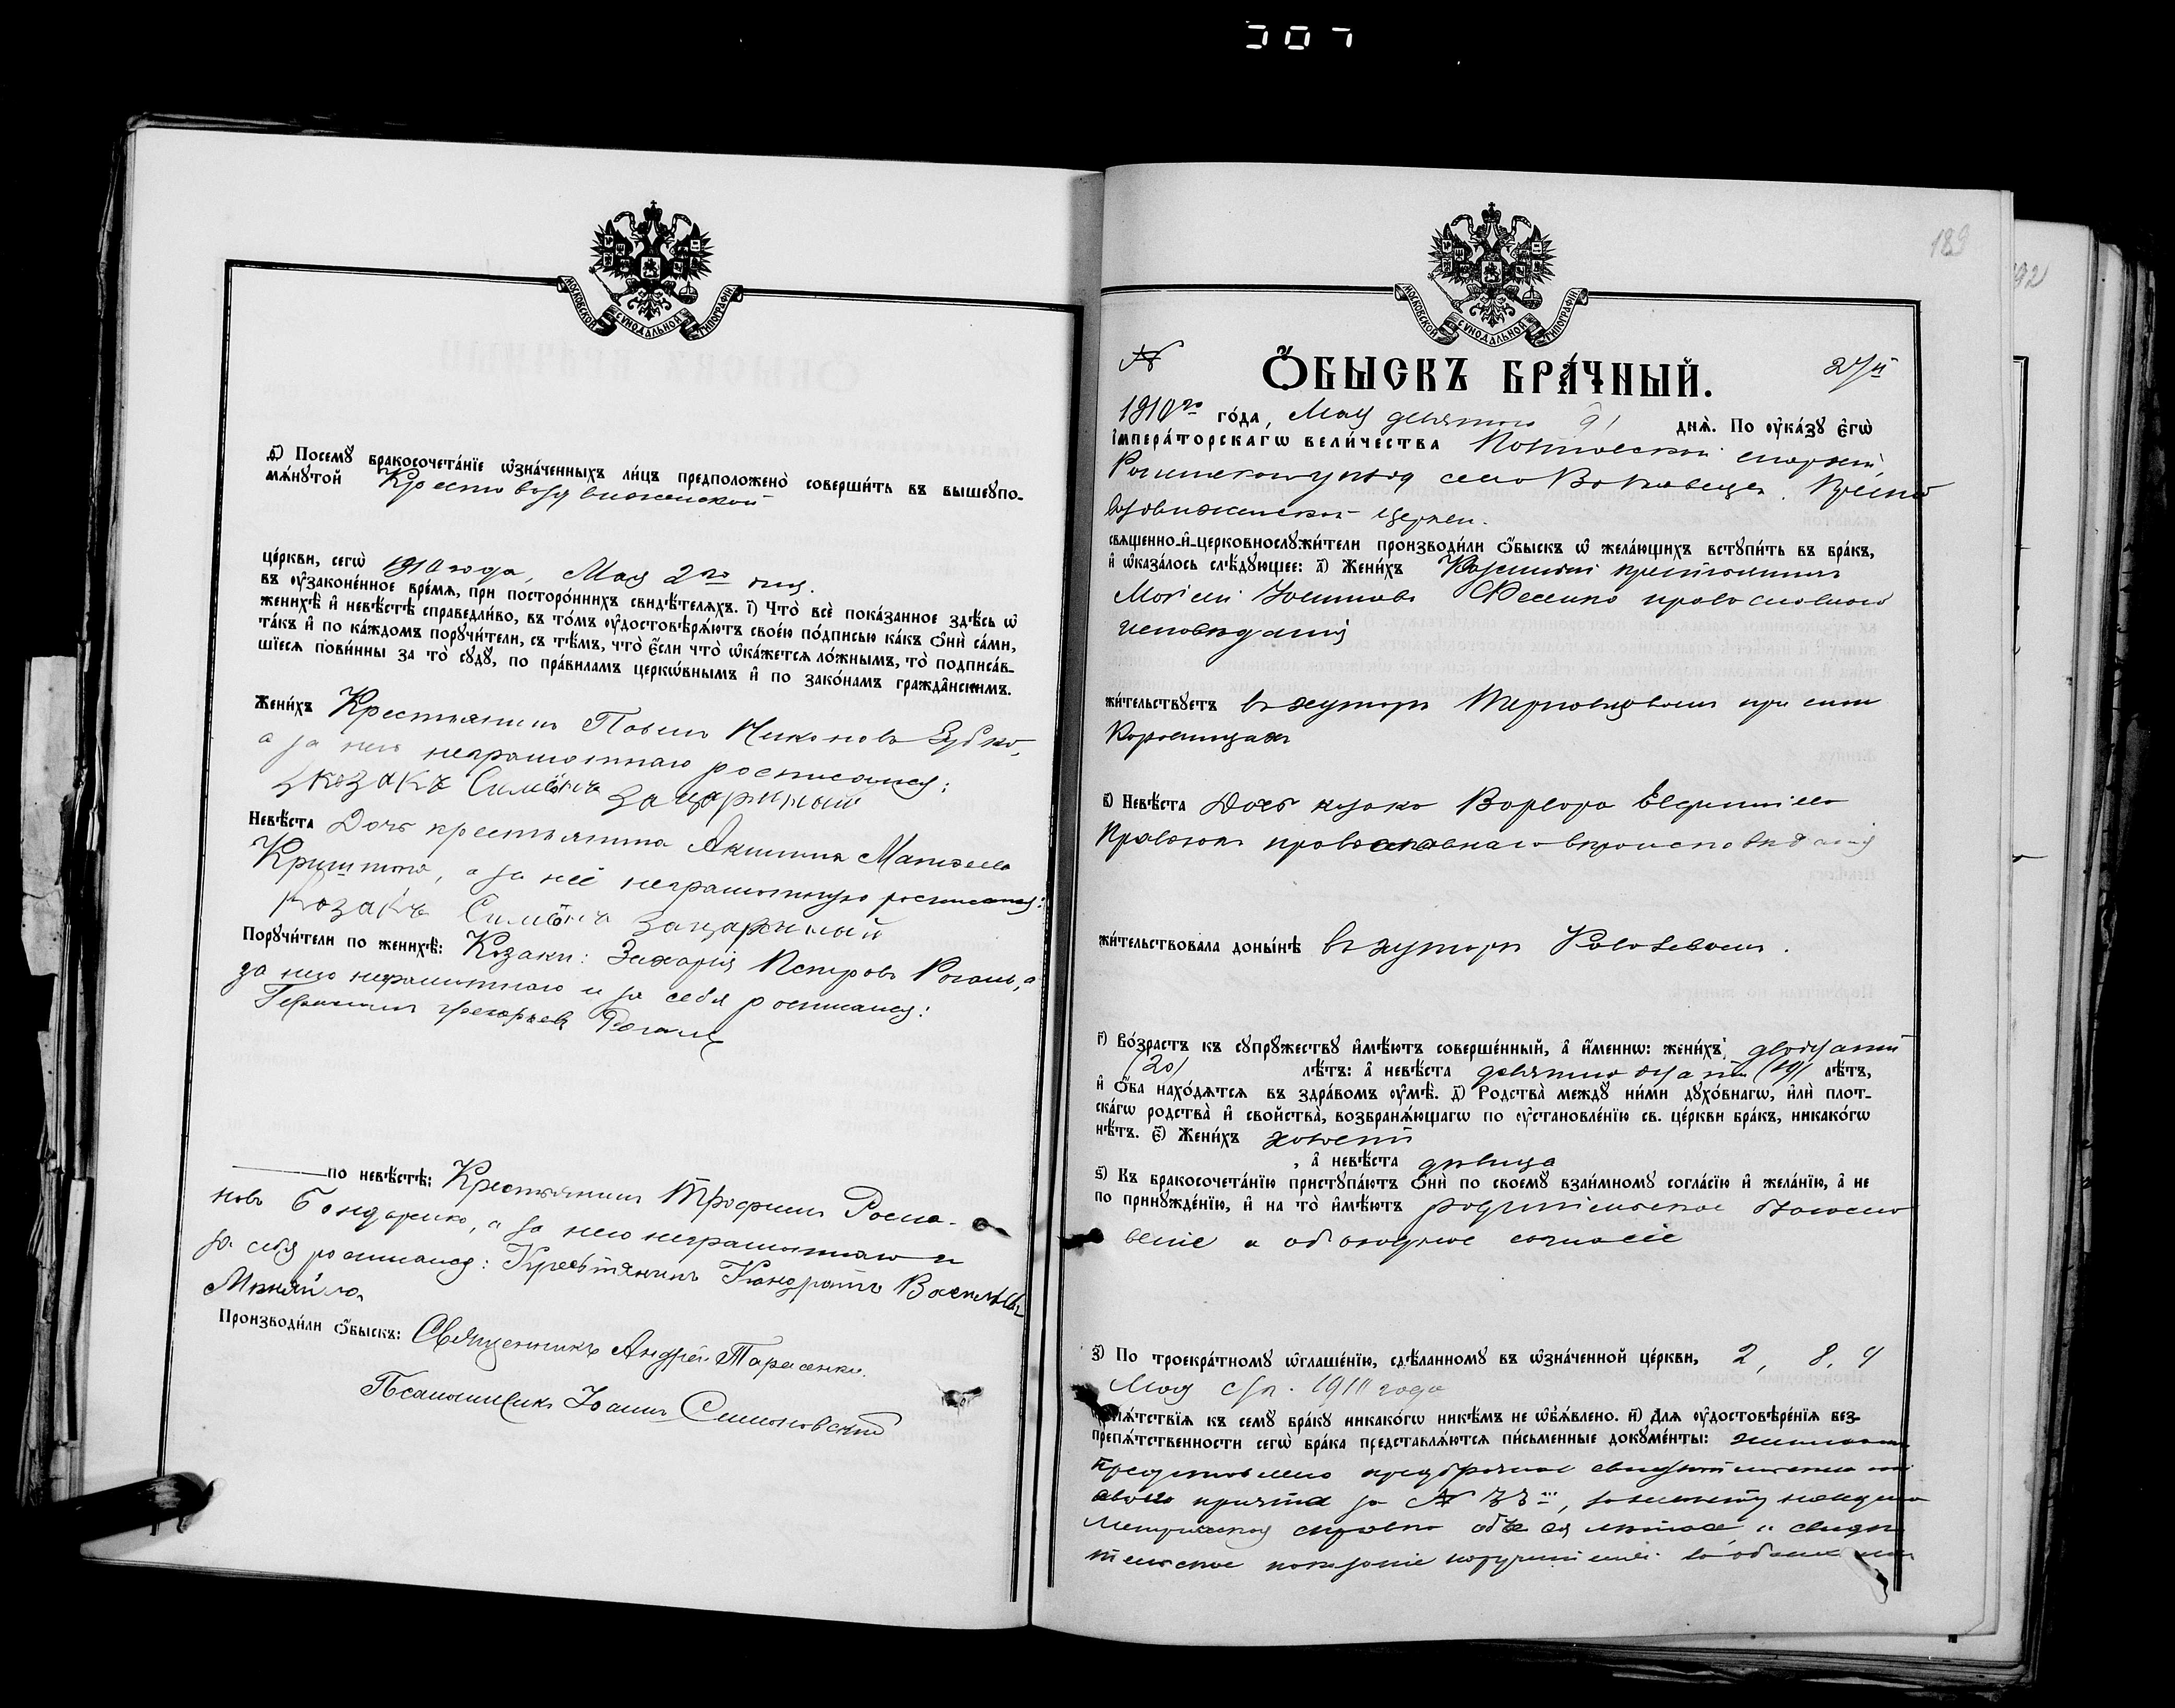 307
МОСКОВСКОЙ СѴНОДАЛЬНОЙ ТИПОГРАФІИ
д҃) Посемꙋ бракосочета́нїе ѡ҆зна́ченныхъ ли́цъ предположено̀ соверши́ть въ вышеꙋпо-
мѧ́нꙋтой Крестовоздвиженской
це́ркви, сегѡ̀ 1910 года, Мая 2го дня.
въ ᲂу҆законе́нное вре́мѧ, при посторо́ннихъ свидѣ́телѧхъ. і҃) Что̀ всѐ пока́занное здѣ́сь ѡ҆
женихѣ̀ и҆ невѣ́стѣ справедли́во, въ то́мъ ᲂу҆достовѣрѧ́ютъ свое́ю по́дписью ка́къ ѻ҆нѝ са́ми,
та́къ и҆ по ка́ждомъ порꙋчи́тели, съ тѣ́мъ, что̀ є҆́сли что̀ ѡ҆ка́жетсѧ ло́жнымъ, то̀ подписа́в-
шїесѧ пови́нны за то̀ сꙋдꙋ̀, по пра́виламъ церкѡ́внымъ и҆ по зако́намъ гражда̑нскимъ.
Жени́хъ Крестьянинъ Павелъ Никоновъ Зубко,
а за него неграмотнаго росписался:
козакъ Симеонъ Зацаринный
Невѣ́ста Дочь крестьянина Акилина Матвеева
а за неё неграмотную росписался:
Козакъ Симеонъ Зацаринный
Порꙋчи́тели по женихѣ̀: Козаки: Захарія Петровъ Рогаль, а
за него неграмотнаго и за себя росписался:
Григорьевъ Рогаль
по невѣ́стѣ: Крестьянинъ Трофимъ Рома-
новъ Бондаренко, а за него неграмотнаго и
за себя росписался: Крестьянинъ Кондратъ Васильевъ
Миняйло.
Производи́ли ѻ҆́быскъ: Священникъ Андрей Тарасенко.
Псаломщикъ Іоаннъ Симоновскій
183
192
МОСКОВСКОЙ СѴНОДАЛЬНОЙ ТИПОГРАФІИ
№ Ѻ҆́БЫСКЪ БРА́ЧНЫЙ. 27й
1910го го́да, Мая девятого 9 днѧ̀. По ᲂу҆ка́зꙋ є҆гѡ̀
і҆мпера́торскагѡ вели́чества Полтавской епархіи,
уѣзда село Кресто
воздвиженской церкви.
свѧще́нно-и҆-церковнослꙋжи́тели производи́ли ѻ҆́быскъ ѡ҆ жела́ющихъ встꙋпи́ть въ бра́къ,
и҆ ѡ҆каза́лось слѣ́дꙋющее: а҃) Жени́хъ Казенный крестьянинъ
Моісей Фесенко православного
исповѣданія
жи́тельствꙋетъ въ хуторѣ при селѣ
в҃) Невѣ́ста Дочь козака Варвара
православнаго вѣроисповѣданія
жи́тельствовала доны́нѣ въ хуторѣ
г҃) Во́зрастъ къ сꙋпрꙋ́жествꙋ и҆мѣ́ютъ соверше́нный, а҆ и҆́меннѡ: жени́хъ двадцати
(20) лѣ́тъ: а҆ невѣ́ста девятнадцати (19) лѣ́тъ,
и҆ ѻ҆́ба нахо́дѧтсѧ въ здра́вомъ ᲂу҆мѣ̀. д҃) Родства̀ междꙋ̀ ни́ми дꙋхо́внагѡ, и҆лѝ плот-
ска́гѡ родства̀ и҆ свойства̀, возбранѧ́ющагѡ по ᲂу҆становле́нїю св. це́ркви бра́къ, никако́гѡ
нѣ́тъ. є҃) Жени́хъ холостъ
, а҆ невѣ́ста дѣвица
ѕ҃) Къ бракосочета́нїю пристꙋпа́ютъ ѻ҆нѝ по своемꙋ̀ взаи́мномꙋ согла́сїю и҆ жела́нїю, а҆ не
по принꙋжде́нїю, и҆ на то̀ и҆мѣ́ютъ родительское благосло
веніе и обоюдное согласіе
з҃) По троекра́тномꙋ ѡ҆глаше́нїю, сдѣ́ланномꙋ въ ѡ҆зна́ченной це́ркви, 2, 8, 9
Мая с/г. 1910 года
препѧ́тствїѧ къ семꙋ̀ бра́кꙋ никако́гѡ никѣ́мъ не ѡ҆б̾ѧ́влено. и҃) Длѧ ᲂу҆достовѣре́нїѧ без-
препѧ́тственности сегѡ̀ бра́ка представлѧ́ютсѧ пи́сьменные докꙋме́нты: женихомъ
представлено предбрачное свидѣтельство
своего причта за №
справка объ ея лѣтахъ и свидѣ
тельское показаніе поручителей